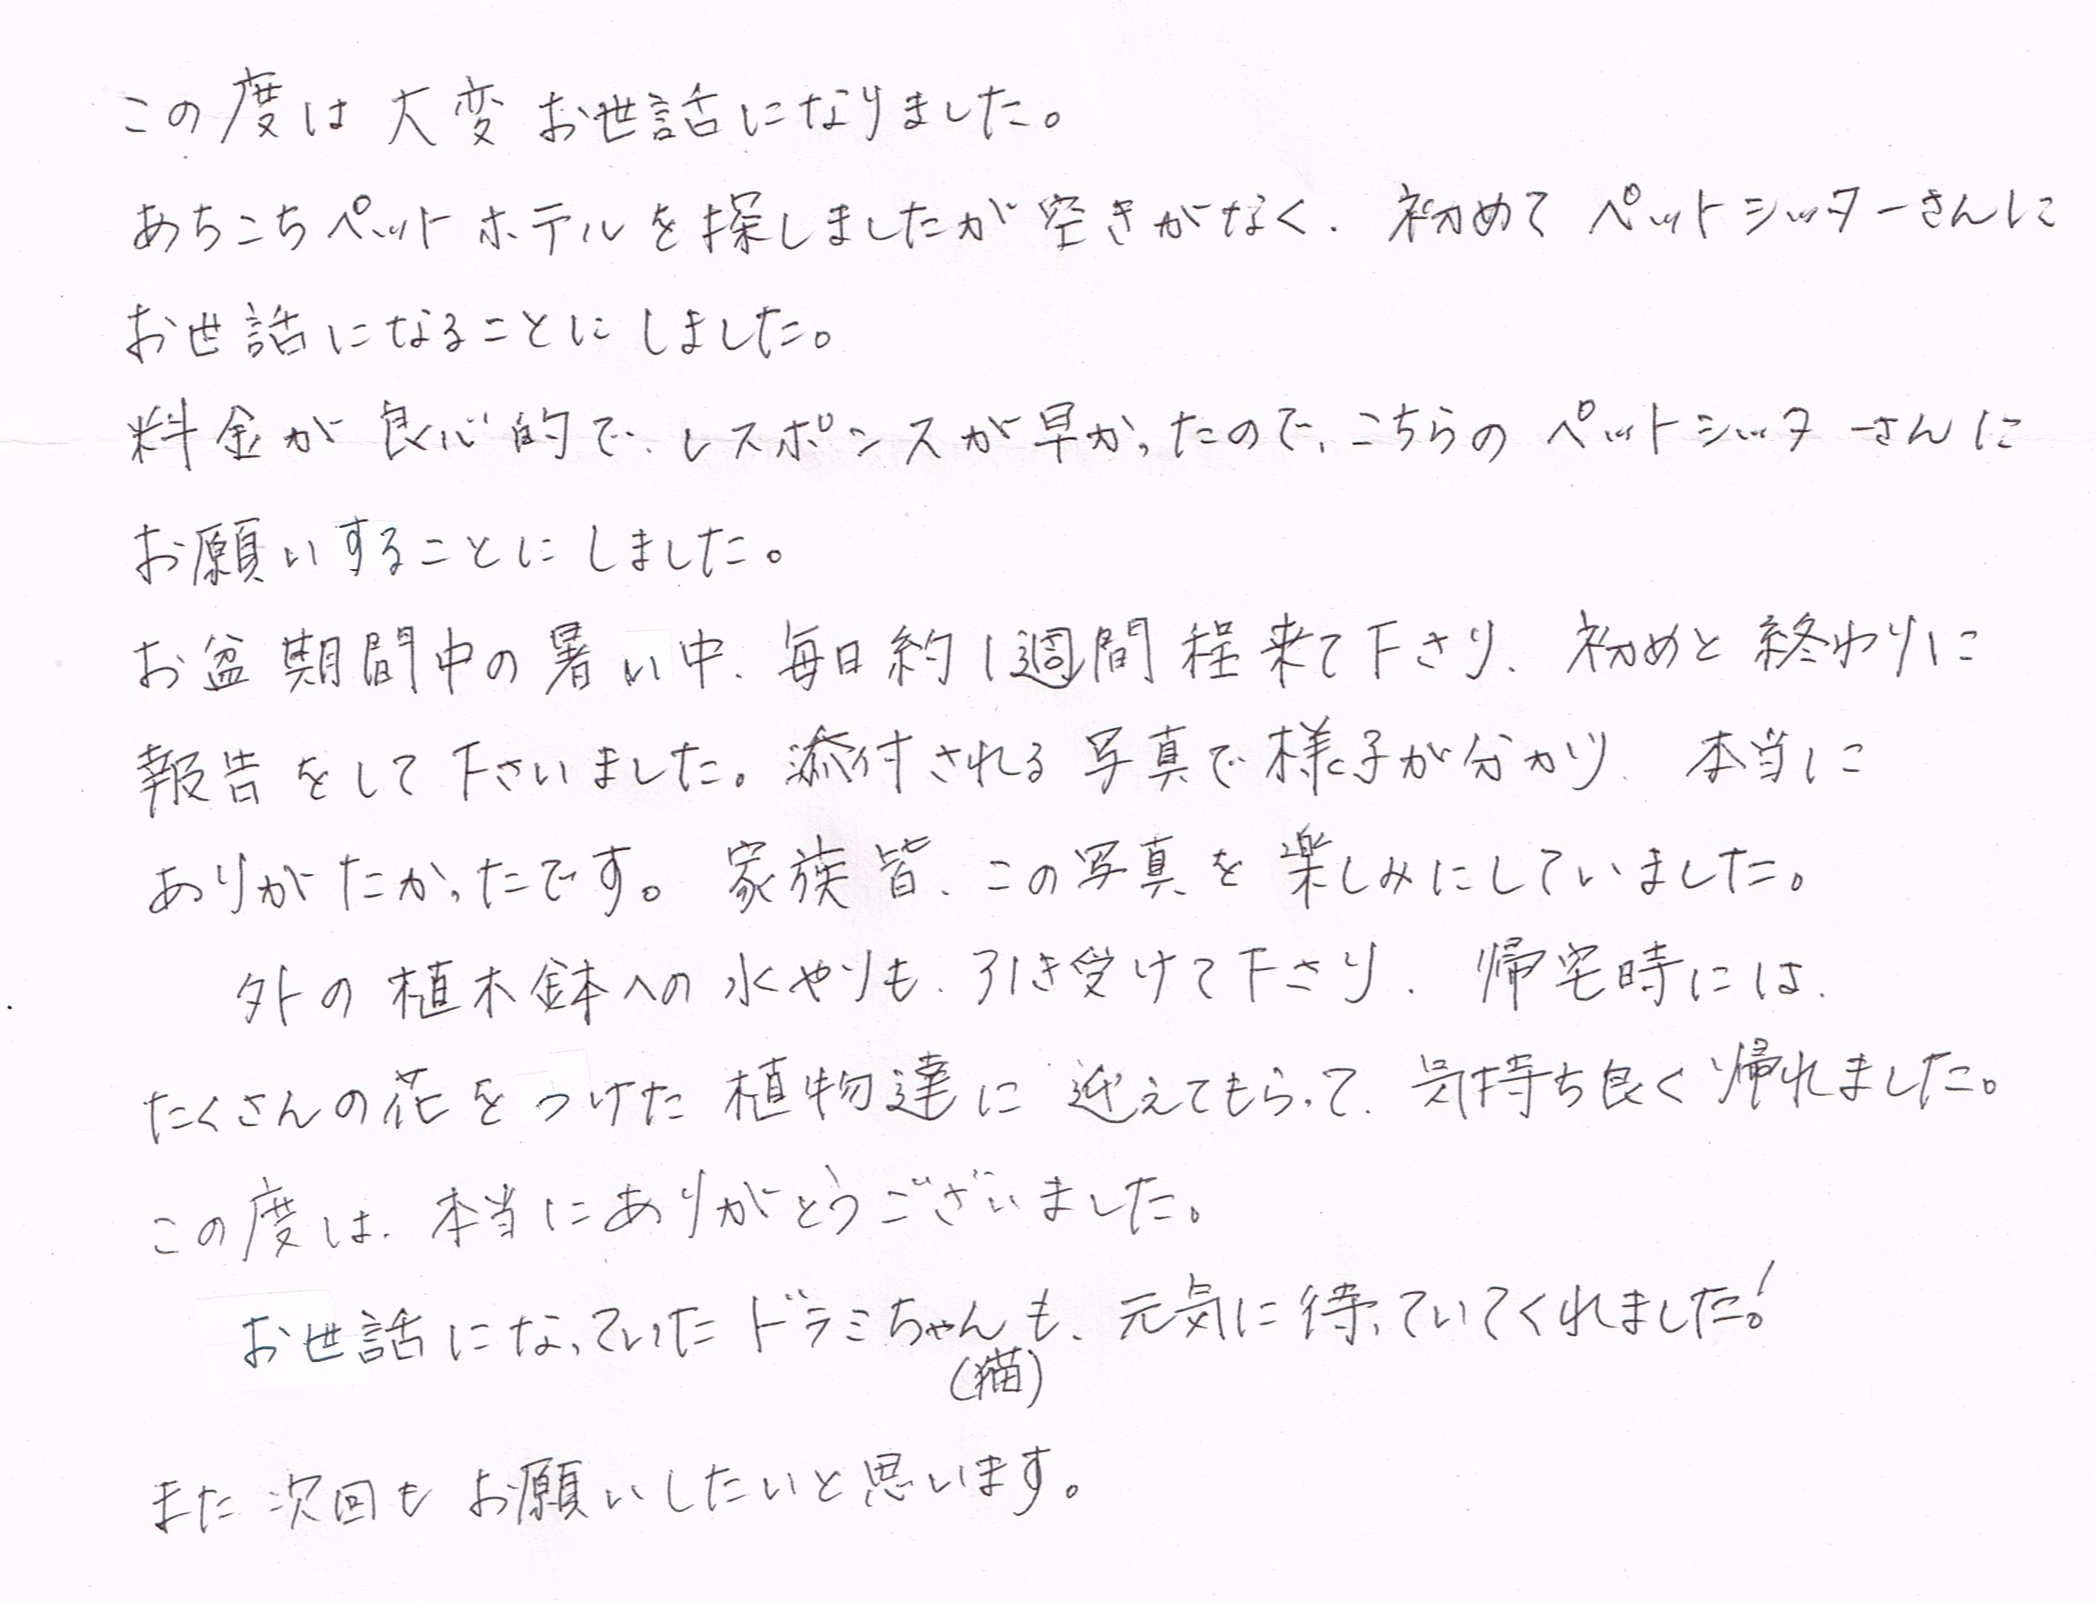 この度は大変お世話になりました。
あちこちペットホテルを探しましたが空きがなく、初めてペットシッターさんに
お世話になることにしました。
料金が良心的で、レスポンスが早かったので、こちらのペットシッターさんに
お願いすることにしました。
お盆期間中の暑い中、毎日約1週間程来て下さり、初めと終わりに
報告をして下さいました。添付される写真で様子が分かり、本当に
ありがたかったです。家族皆、この写真を楽しみにしていました。
外の植木鉢への水やりも、引き受けて下さり、帰宅時には、
たくさんの花をつけた植物達に迎えてもらって、気持ち良く帰れました。
この度は、本当にありがとうございました。
お世話になっていたドラミちゃんも、元気に待っていてくれました!
(猫)
また次回もお願いしたいと思います。